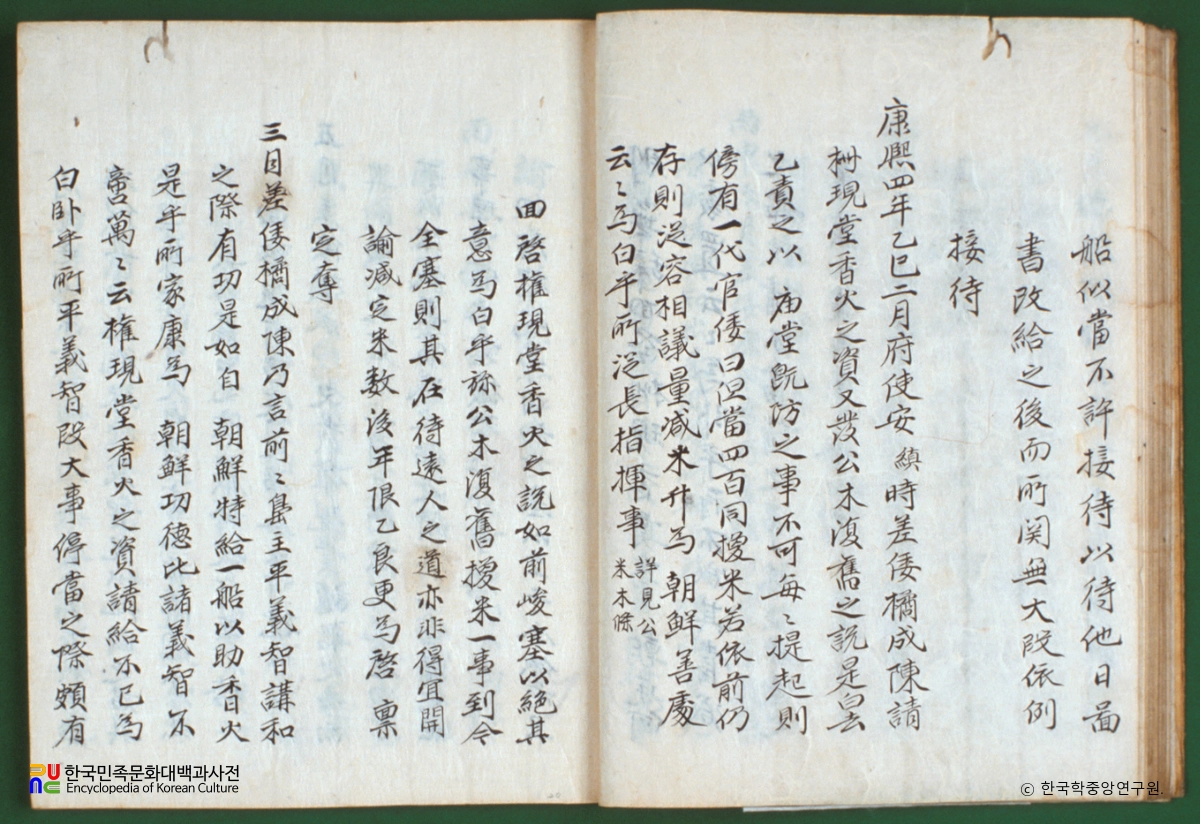 船似當不許接待以待他日啚
書改給之後而所関無大段依例
接待
康熙四年乙巳二月府使安 縝 時差倭橘成陳請
柎現堂香火之資又發公木復舊之說是白去
乙責之以 庙堂旣防之事不可每〻提起則
傍有一代官倭曰但當四百同授米若依前仍
存則從容相議量减米升為 朝鮮善處
云〻為白乎所從長指揮事 詳見公米木條
回啓權現堂香火之說如前峻塞以絕其
意為白乎旀公木復舊授米一事到今
全塞則其在待遠人之道亦非得宜開
論减定米数後年限乙良更為啓 稟
定奪
三目差倭橘成陳乃言前〻島主平義智講和
之際有功是如白 朝鮮特給一船以助香火
是乎所家康為 朝鮮功德比諸義智不
啻萬〻云權現堂香火之資請給不已為
白卧乎所平義智段大事停當之際頗有
한국민족문화대백과사전
Encyclopedia of Korean Culture
© 한국학중앙연구원.